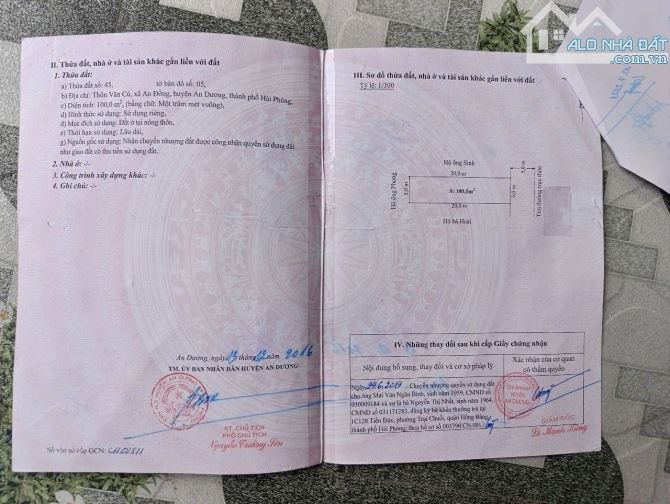 ALO NHÀ ĐẤT
II. Thửa đất, nhà ở và tài sản khác gắn liền với đất
1. Thửa đất:
a) Thửa đất số: 45, tờ bản đồ số: 05,
b) Địa chỉ: Thôn Văn Cú, xã An Đồng, huyện An Dương, thành phố Hải Phòng,
c) Diện tích: 100,0 m², (bằng chữ: Một trăm mét vuông),
d) Hình thức sử dụng: Sử dụng riêng,
đ) Mục đích sử dụng: Đất ở tại nông thôn,
e) Thời hạn sử dụng: Lâu dài,
g) Nguồn gốc sử dụng: Nhận chuyển nhượng đất được công nhận quyền sử dụng đất
như giao đất có thu tiền sử dụng đất.
2. Nhà ở: -/-
3. Công trình xây dựng khác: -/-
4. Ghi chú: -/-
An Dương, ngày 13 tháng 12 năm 2016
TM. ỦY BAN NHÂN DÂN HUYỆN AN DƯƠNG
KT. CHỦ TỊCH
PHÓ CHỦ TỊCH
Nguyễn Trường Sơn
Số vào sổ cấp GCN:
III. Sơ đồ thửa đất, nhà ở và tài sản khác gắn liền với đất
Tỷ lệ: 1/300
Hộ ông Sinh
20,0m
5,0m
Hộ ông Phong
5,0m
S: 100,0m²
5,0m
Tim đường trục thôn
20,0m
Hộ bà Hoài
IV. Những thay đổi sau khi cấp Giấy chứng nhận
Nội dung bổ sung, thay đổi và cơ sở pháp lý
Xác nhận của cơ quan
có thẩm quyền
Ngày 24.6.2019 : Chuyển nhượng quyền sử dụng đất
cho ông Mai Văn Ngân Bình, sinh năm 1959, CMND số
030009184 và vợ là bà Nguyễn Thị Nhất, sinh năm 1964,
CMND số 031171283, đăng ký hộ khẩu thường trú tại
1C128 Tiền Đức, phường Trại Chuối, quận Hồng Bàng,
thành phố Hải Phòng; theo hồ sơ số 003796.CN.001
CHI NHÁNH
HUYỆN
AN DƯƠNG
GIÁM ĐỐC
Lê Mạnh Hùng